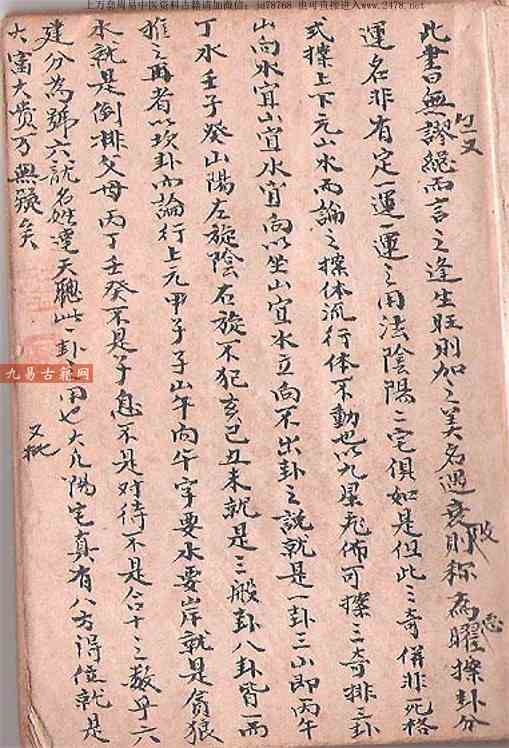 上万套周易中医资料古籍请加微信：ja78768 也可直接进入www.2478.net
此書曰無謬總而言之逢生旺則加之美名遇衰則称為曜操卦分
運名非有定一運一運之用法陰陽二宅俱如是但此三奇併非死格
式操上下元山水而論之操体流行体不動也以九星飛佈可操三奇排三卦
山向水宜山宜水宜向以坐山宜水立向不出卦之説就是一卦三山即丙午
丁水壬子癸山陽左旋陰右旋不犯亥巳丑未就是三般卦八卦皆一而
推之再者以坎卦而論行上元甲子子山午向午字要水要岸就是貪狼
水就是倒排父母丙丁壬癸不是子息不是对待不是合十之数乎六
建分為號六就名姓達天聰此一卦之用也大凡陽宅真有八方得位就是
大富大贵万無疑矣
又批
九易古籍网